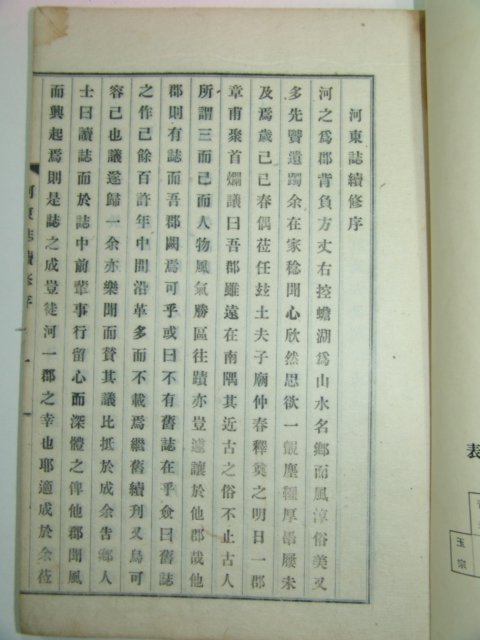 河東誌續修序
河之爲郡背負方丈右控蟾湖爲山水名鄕而風淳俗美又
多先贒遺躅余在家稔聞心欣然思欲一覩塵纓厚絆屢未
及爲歲己巳春偶莅任玆土夫子廟仲春釋奠之明日一郡
章甫聚首爛議曰吾郡雖遠在南隅其近古之俗不止古人
所謂三而已而人物風氣勝區往蹟亦豈遽讓於他郡哉他
郡則有誌而吾郡闕焉可乎或曰不有舊誌在乎僉曰舊誌
之作已餘百許年中間沿革多而不載焉繼舊續刊又烏可
容已也議遂歸一余亦樂聞而贊其議比抵於成余告鄕人
士曰讀誌而於誌中前輩事行留心而深體之俾他郡聞風
而興起焉則是誌之成豈徒河一郡之幸也耶適成於余莅
河東誌續修序
一
表
玉
宗